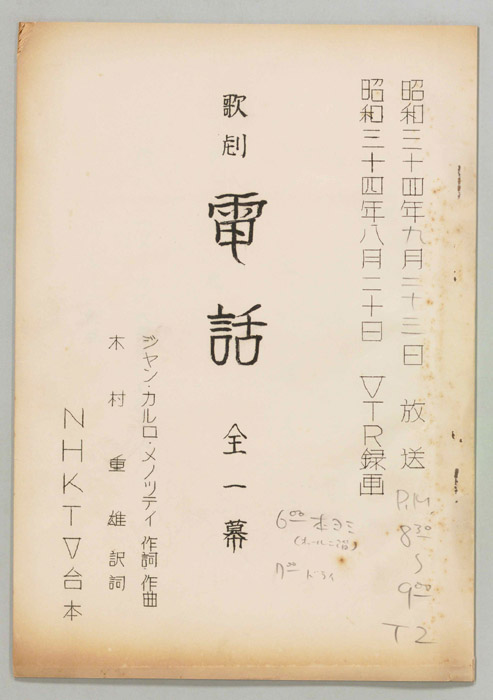 昭和三十四年九月二十三日 放送
P.M.
8³⁰
〜
9⁰⁰
T2
昭和三十四年八月二十日 VTR録画
6⁰⁰ 本ヨミ
7⁰⁰ ドライ
歌劇 電話 全一幕
ジャン・カルロ・メノッティ 作詞 作曲
木村重雄 訳詞
NHKTV台本